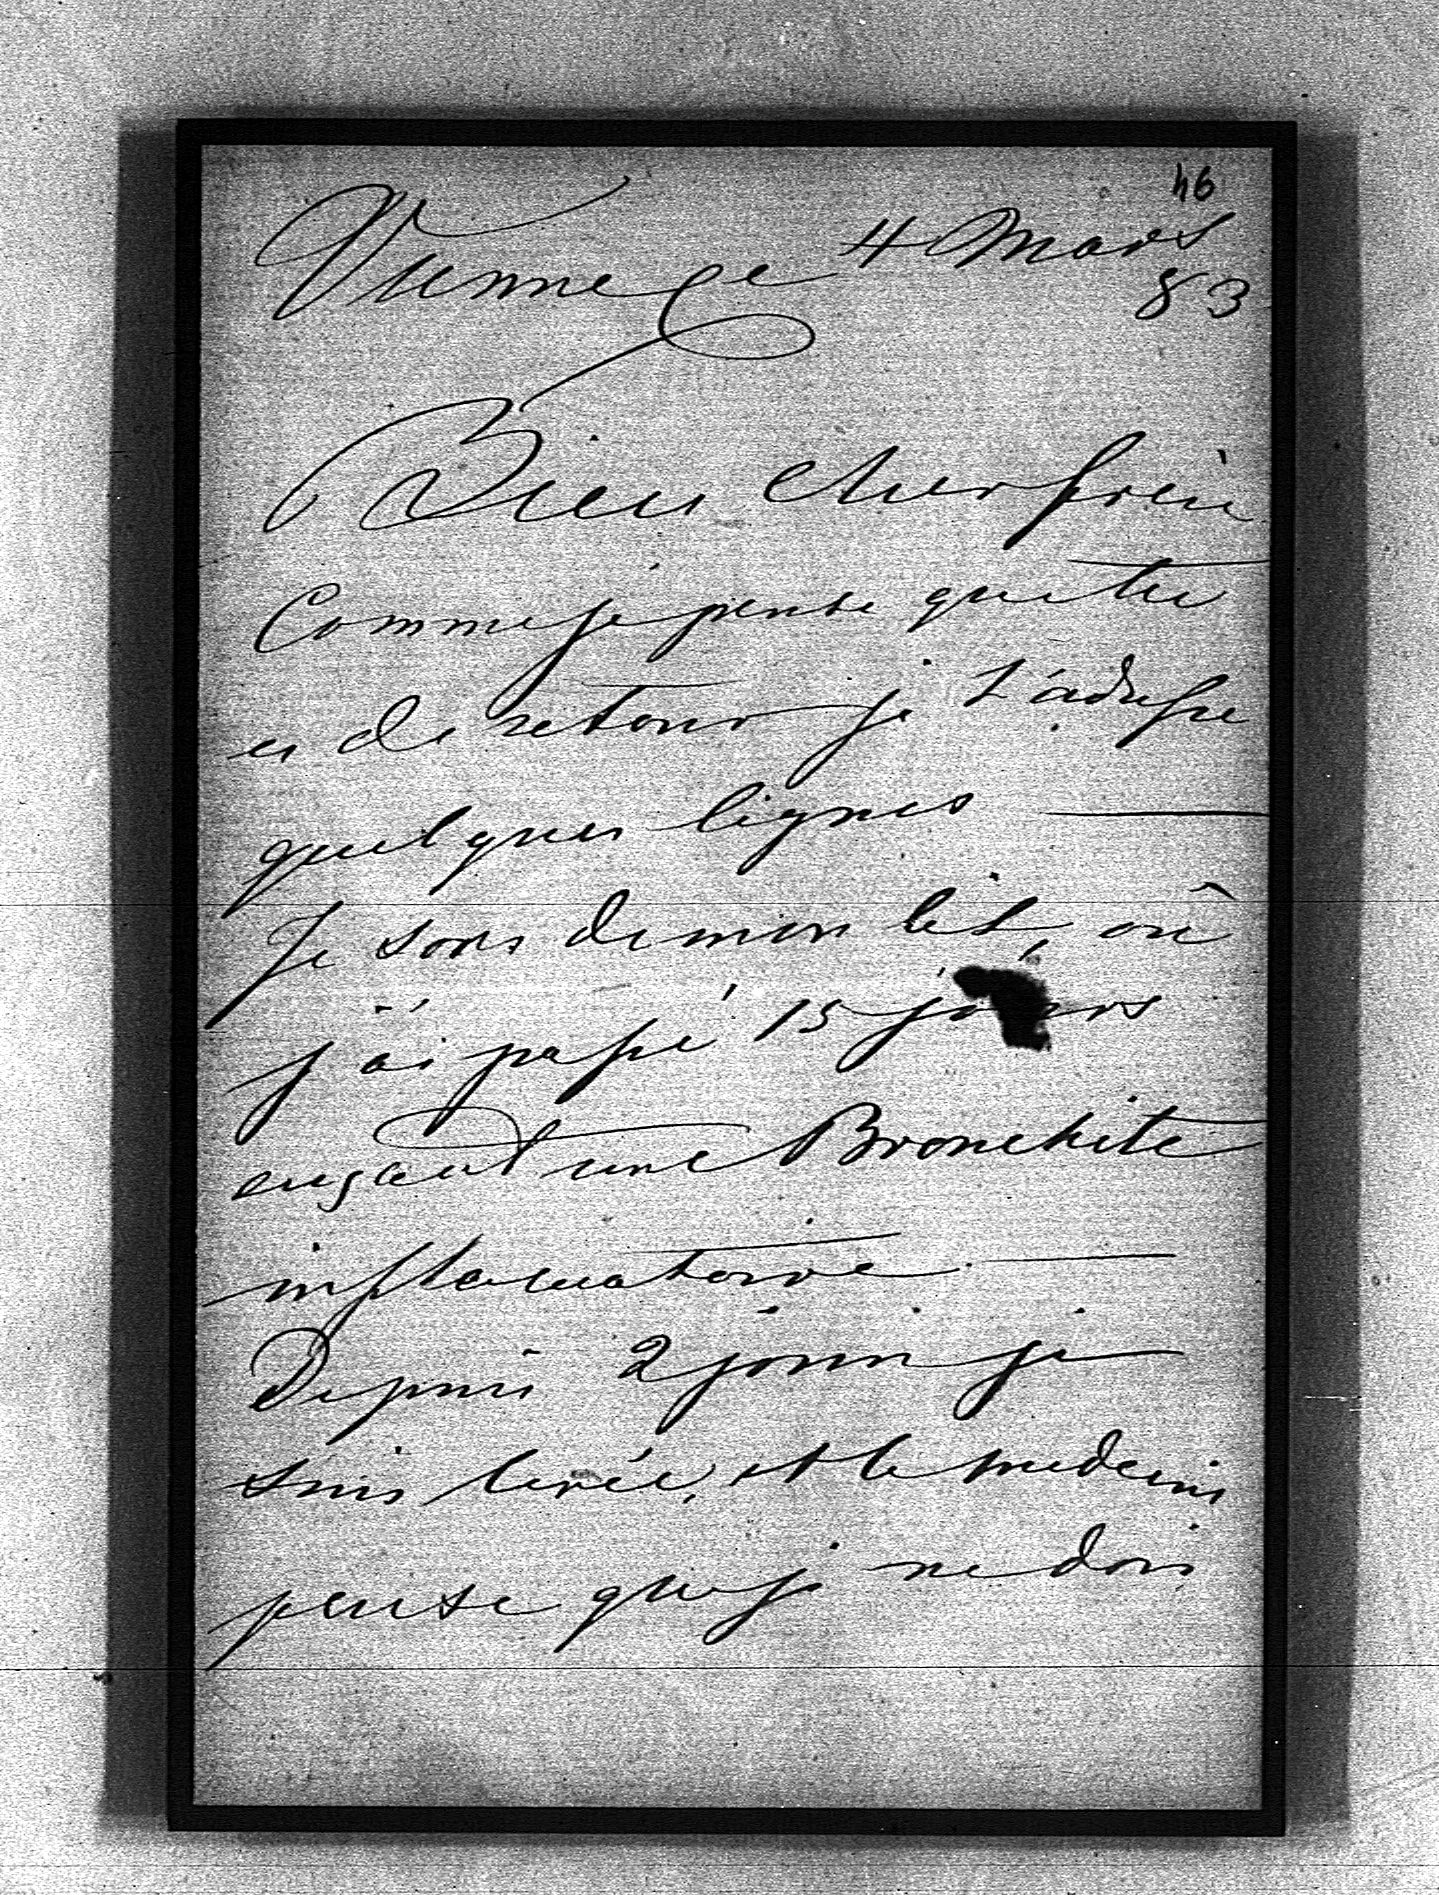 46
Vienne ce 4 Mars
83
Bien cher frère
Comme je pense que tu
es de retour je t'adresse
quelques lignes —
Je sors de mon lit, où
j'ai passé 15 jours
ayant une Bronchite
inflamatoire. —
Depuis 2 jours je
suis levée, et le medecin
pense que je ne dois